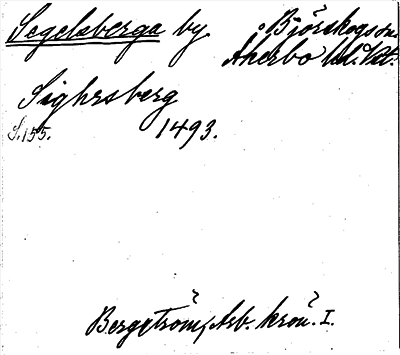 Segelsberga by Björskogs sn.
Åkerbo hd. Vstm.
Sighrsberg
S. 155. 1493.
Bergström, Arb. krön. I.